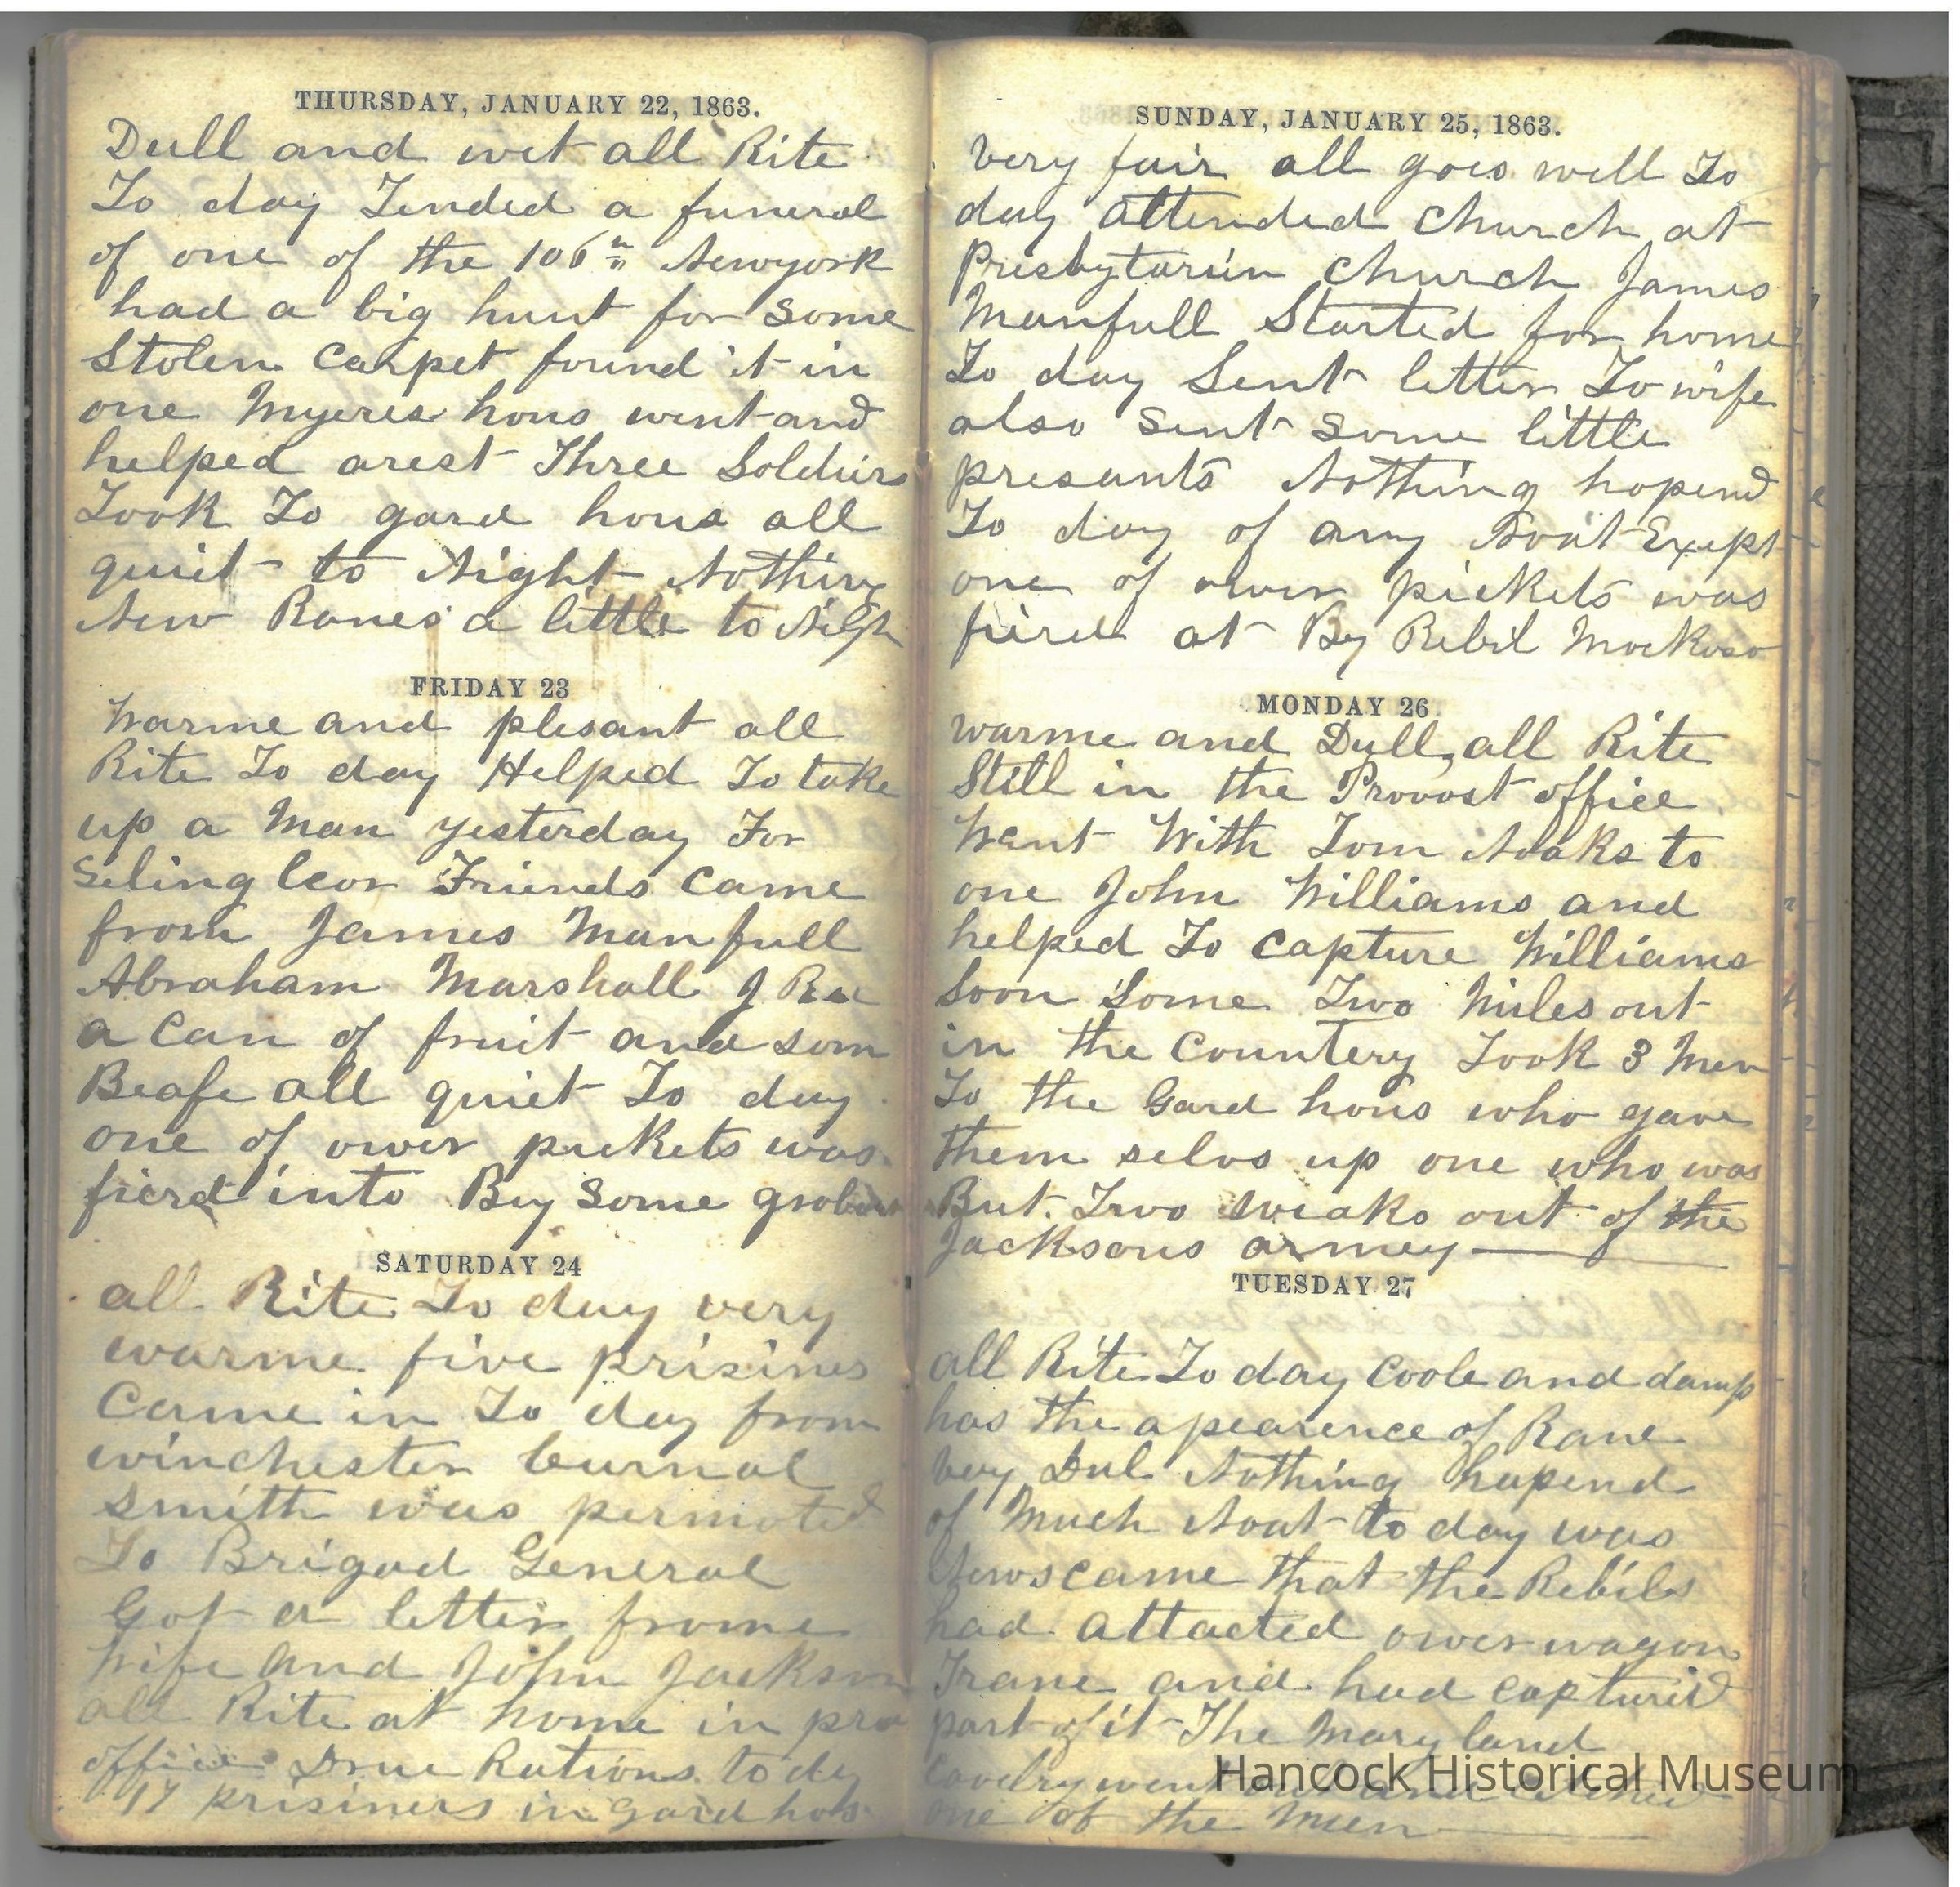 THURSDAY, JANUARY 22, 1863.
Dull and wet all Rite
To day Tended a funeral
of one of the 106th Newyork
had a big hunt for some
Stolen Carpet found it in
one Myeres hous went and
helped arest Three Soldiers
Took To gard hous all
quiet to Night Nothing
New Ranes a little to Nigh
FRIDAY 23
Warme and plesant all
Rite To day Helped To take
up a Man yesterday For
Seling Lcor Friends Came
from James Manfull
Abraham Marshall I Re
a Can of fruit and som
Beafe all quiet To day
one of ower pickets was
fierd into By Some
SATURDAY 24
all Rite To day very
warme five prisines
Came in To day from
winchester Curnal
Smith was permoted
To Brigad General
Got a letter frome
Wife and John Jackson
all Rite at home in pro
office Drue Rations to dy
17 prisiners in gard hos
SUNDAY, JANUARY 25, 1863.
very fair all goes well To
day attended Church at
Presbytariin Church James
Manfull Started for home
To day Sent letter To wife
also Sent Some little
presants Nothing hapend
To day of any Noat Exept
one of ower pickets was
fired at By Rebil
MONDAY 26
warme and Dull, all Rite
Still in the Provost office
Went With Tom Noaks to
one John Williams and
helped To Capture Williams
Soon Some Two Miles out
in the Countery Took 3 Men
To the Gard hous who gave
them selvs up one who was
But Two weaks out of the
Jacksons armey
TUESDAY 27
all Rite To day Coole and damp
has the apearence of Rane
very Dul Nothing hapend
of Much Noat to day was
News came that the Rebils
had attacted ower wagon
Trane and had capturid
part of it The Maryland
Cavelry went and
one of the Men
Hancock Historical Museum